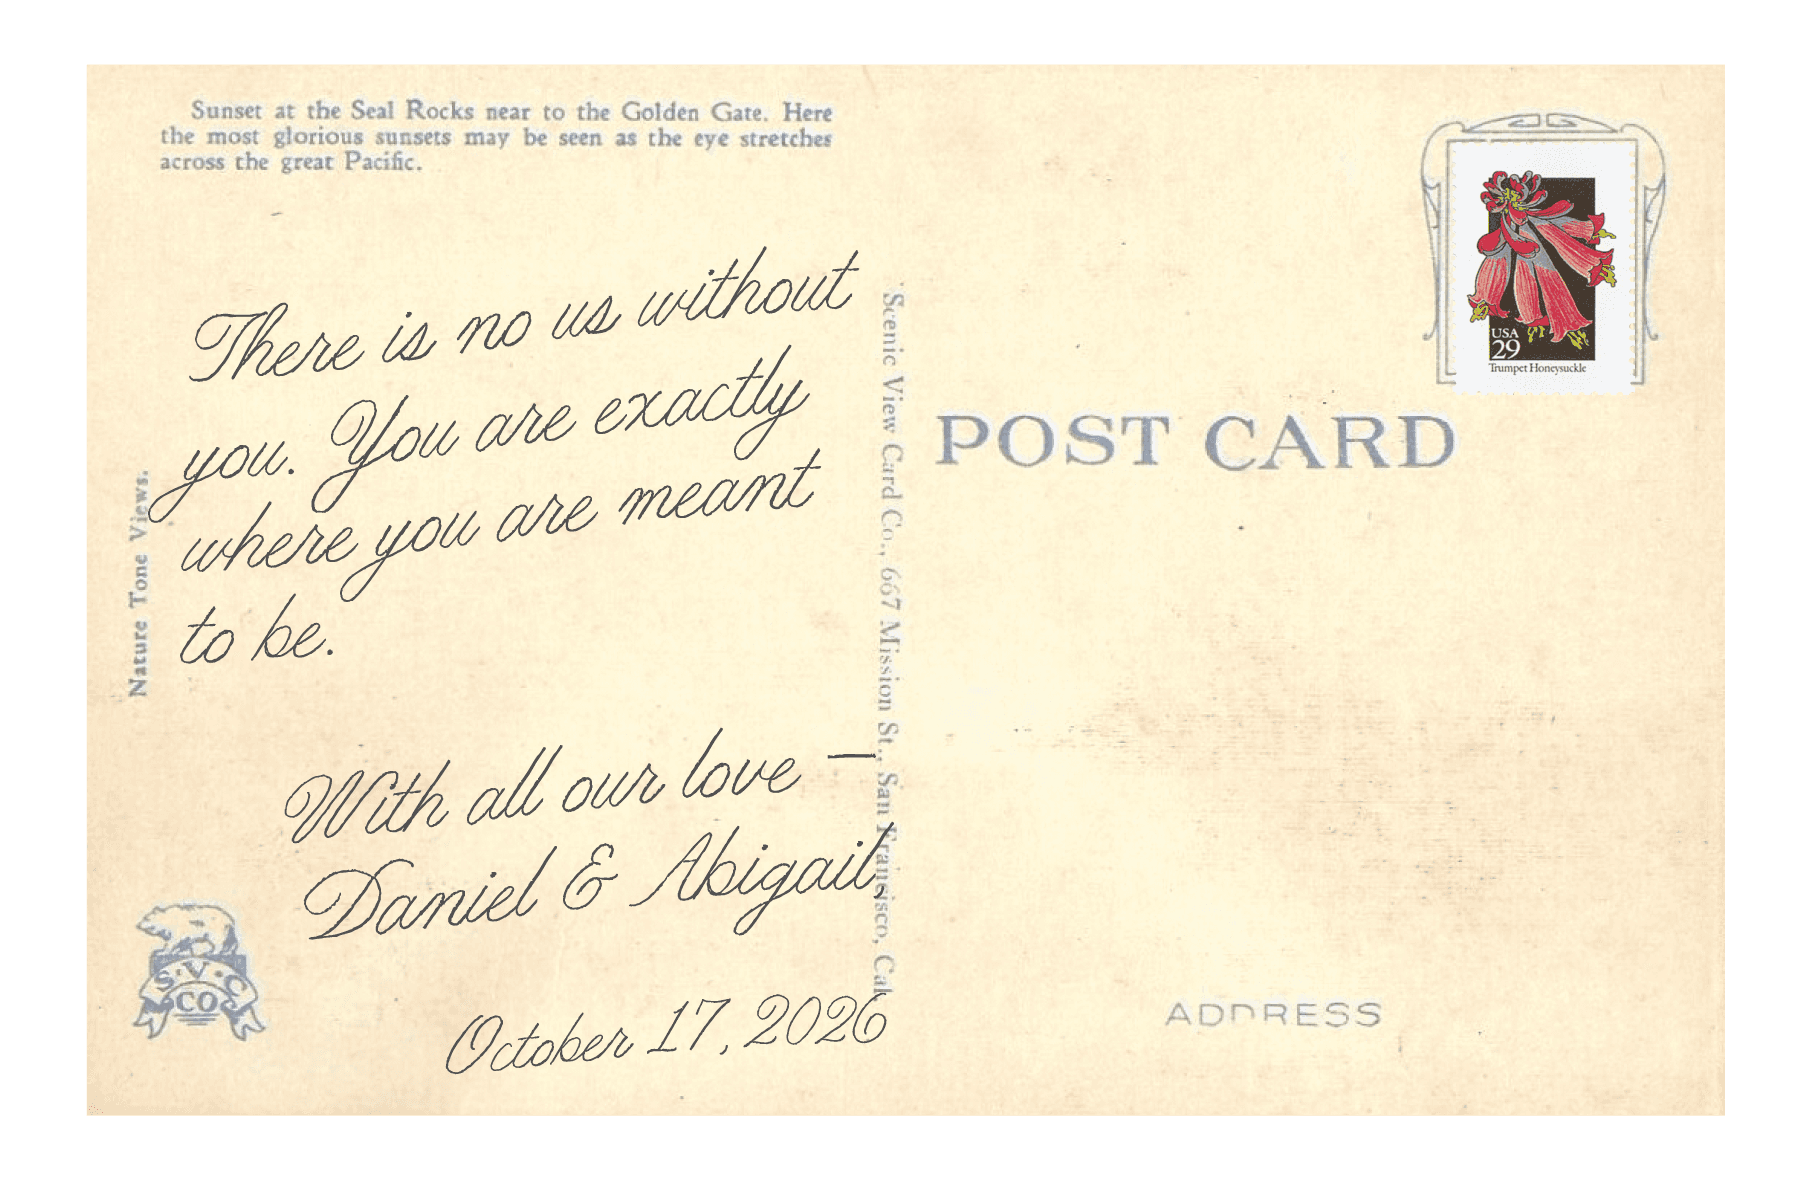 Sunset at the Seal Rocks near to the Golden Gate. Here
the most glorious sunsets may be seen as the eye stretches
across the great Pacific.
There is no us without
you. You are exactly
where you are meant
to be.
With all our love —
Daniel & Abigail,
October 17, 2026
Nature Tone Views.
S.V.C
CO
Scenic View Card Co., 667 Mission St., San Francisco, Cal
USA
29
Trumpet Honeysuckle
POST CARD
ADDRESS